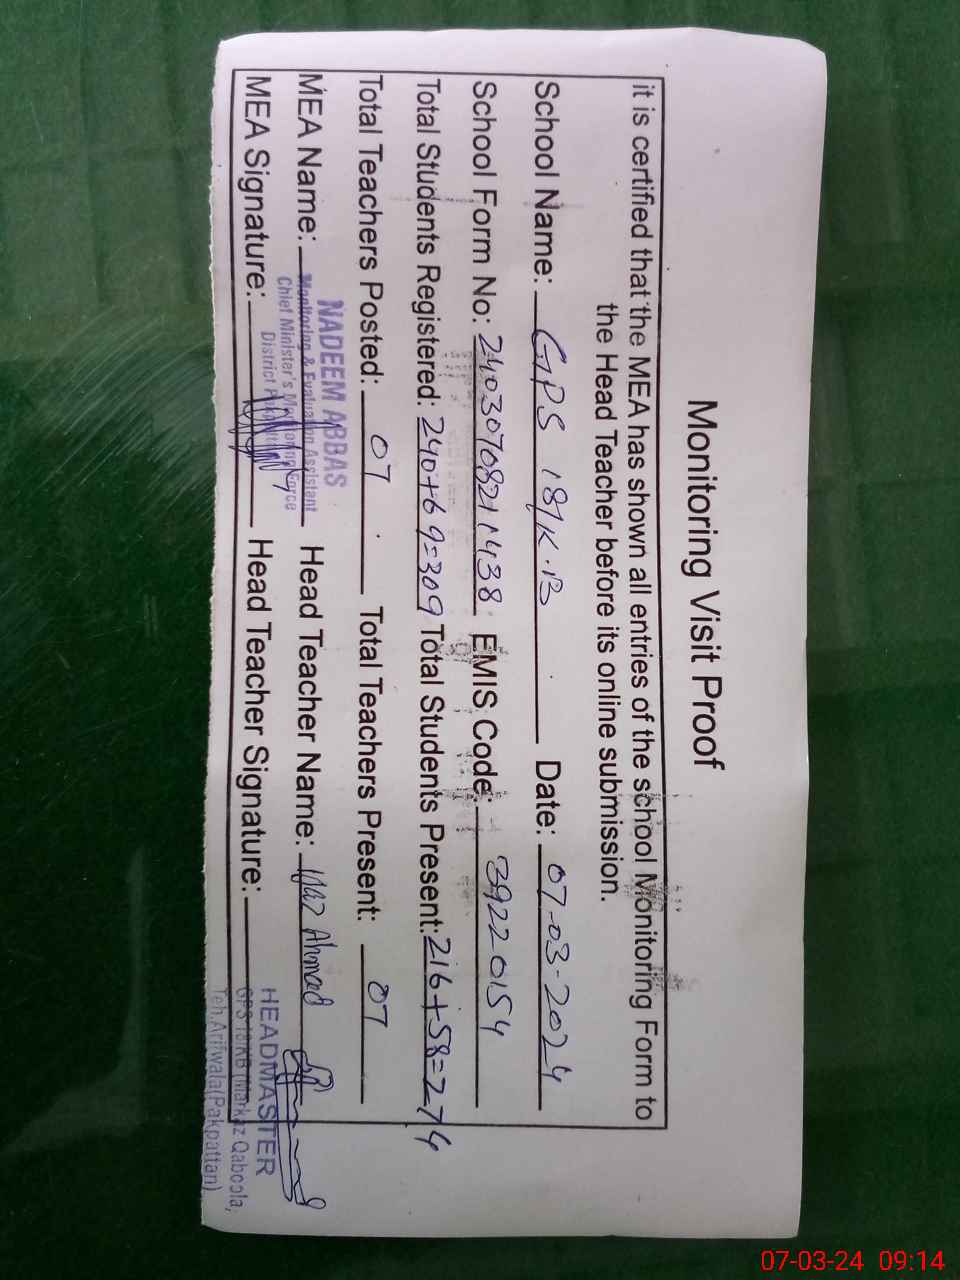 Monitoring Visit Proof
it is certified that the MEA has shown all entries of the school Monitoring Form to
the Head Teacher before its online submission.
School Name: GPS 18/K.B Date: 07-03-2024
School Form No: 24030708211438 EMIS Code: 39220154
Total Students Registered: 240+69=309 Total Students Present: 216+58=274
Total Teachers Posted: 07 Total Teachers Present: 07
NADEEM ABBAS
MEA Name: Monitoring & Evaluation Assistant Head Teacher Name: Ijaz Ahmad
Chief Minister's Monitoring Force
District
HEADMASTER
MEA Signature: Head Teacher Signature:
GPS 18/KB Markaz Qaboola,
Teh.Arifwala(Pakpattan)
07-03-24 09:14